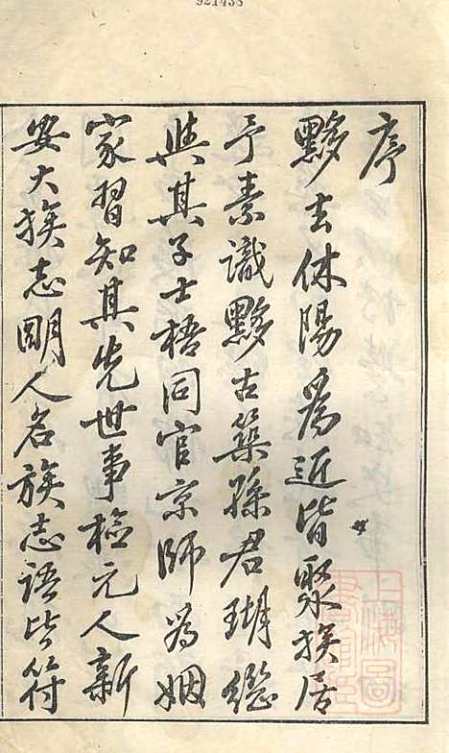 921438
序
黟去休陽為近皆聚族居
予素識黟古築孫君瑚繼
與其子士梧同官京師為姻
家習知其先世事檢元人新
安大族志明人名族志語皆符
上海圖書館藏